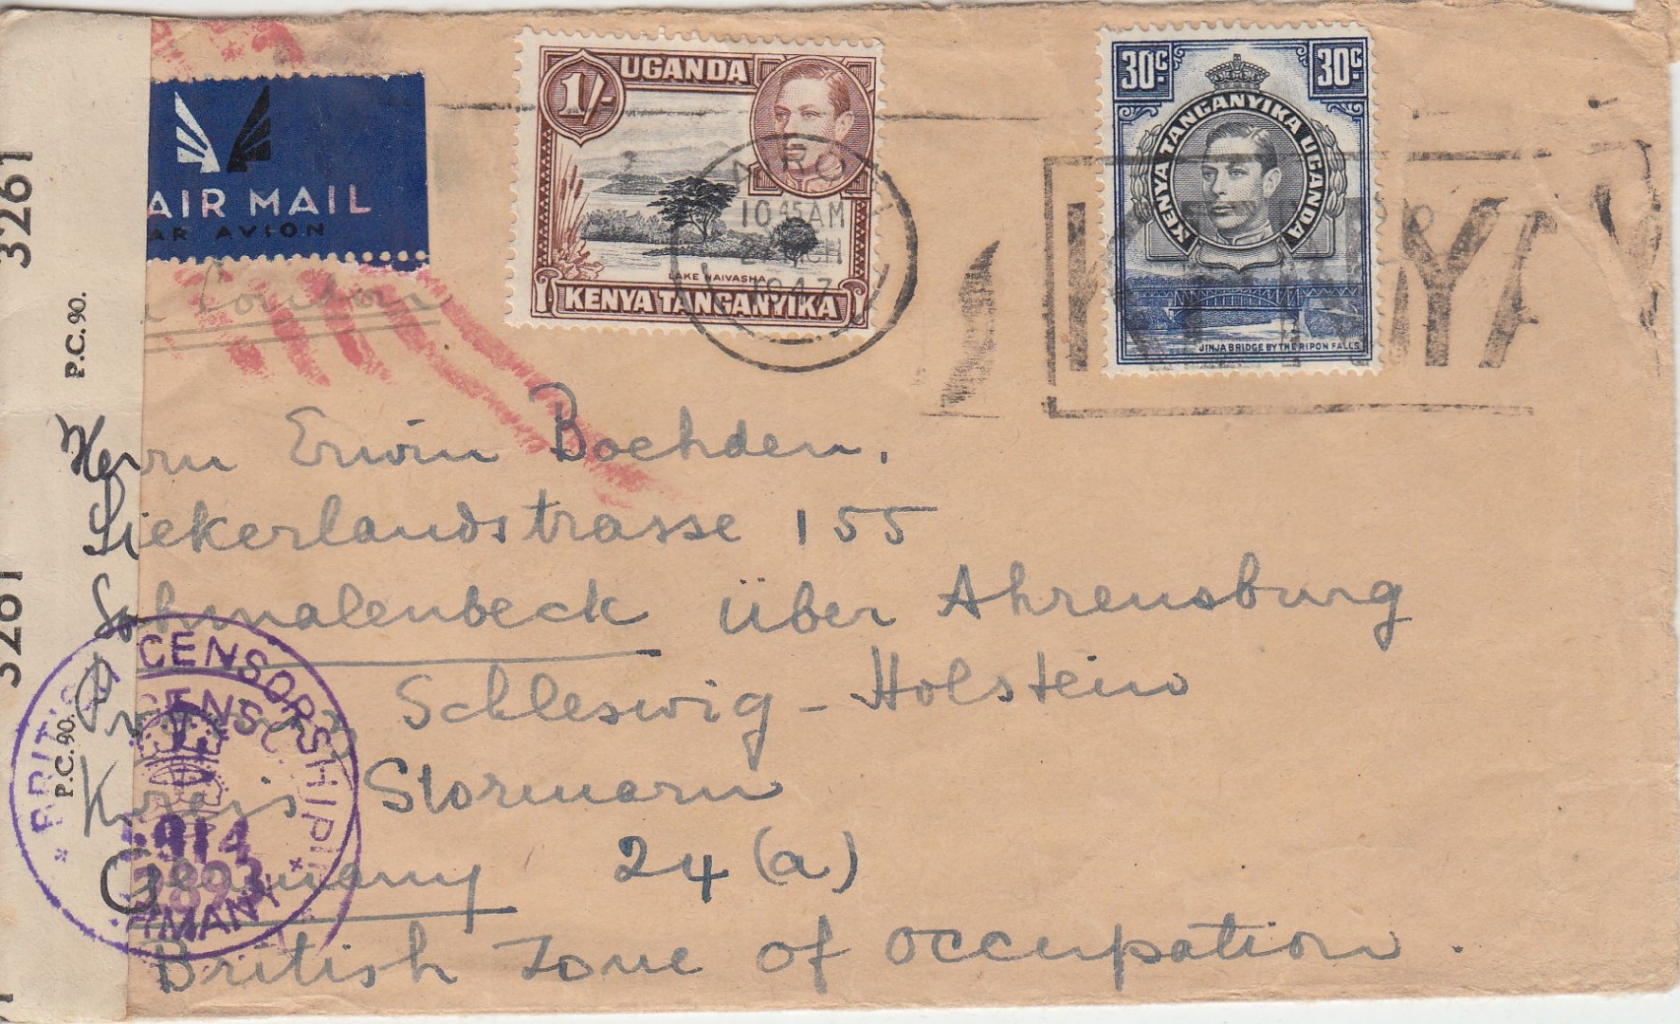 3261
P.C. 90.
AIR MAIL
AR AVION
London
UGANDA
1/-
LAKE NAIVASHA
KENYA TANGANYIKA
10 45 AM
30c
30c
KENYA TANGANYIKA UGANDA
JINJA BRIDGE BY THE RIPON FALLS.
KENYA
Herrn Erwin Boehden.
Siekerlandstrasse 155
Schmalenbeck über Ahrensburg
Provinz Schleswig - Holstein
Kreis Stormarn
Germany 24 (a)
British Zone of occupation.
3261
P.C. 90.
BRITISH CENSORSHIP